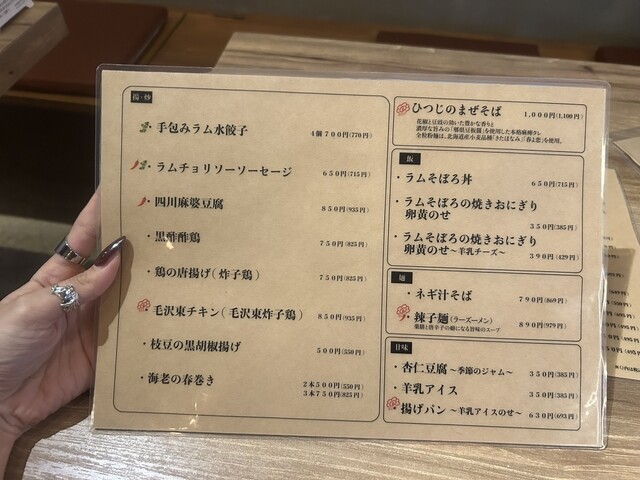 揚・炒
手包みラム水餃子 4個700円(770円)
ラムチョリソーソーセージ 650円(715円)
四川麻婆豆腐 850円(935円)
・黒酢酢鶏 750円(825円)
・鶏の唐揚げ(炸子鶏) 750円(825円)
毛沢東チキン(毛沢東炸子鶏) 850円(935円)
・枝豆の黒胡椒揚げ 500円(550円)
・海老の春巻き 2本500円(550円)
3本750円(825円)
ひつじのまぜそば 1,000円(1,100円)
花椒と豆豉の効いた豊かな香りと
濃厚な旨みの「郫県豆板醤」を使用した本格麻辣タレ
全粒粉麺は、北海道産小麦品種「きたほなみ」「春よ恋」を使用。
飯
・ラムそぼろ丼 650円(715円)
・ラムそぼろの焼きおにぎり
卵黄のせ 350円(385円)
・ラムそぼろの焼きおにぎり
卵黄のせ〜羊乳チーズ〜 390円(429円)
麺
・ネギ汁そば 790円(869円)
辣子麺(ラーズーメン) 890円(979円)
甘味
・杏仁豆腐〜季節のジャム〜 350円(385円)
・羊乳アイス 350円(385円)
・揚げパン〜羊乳アイスのせ〜 630円(693円)